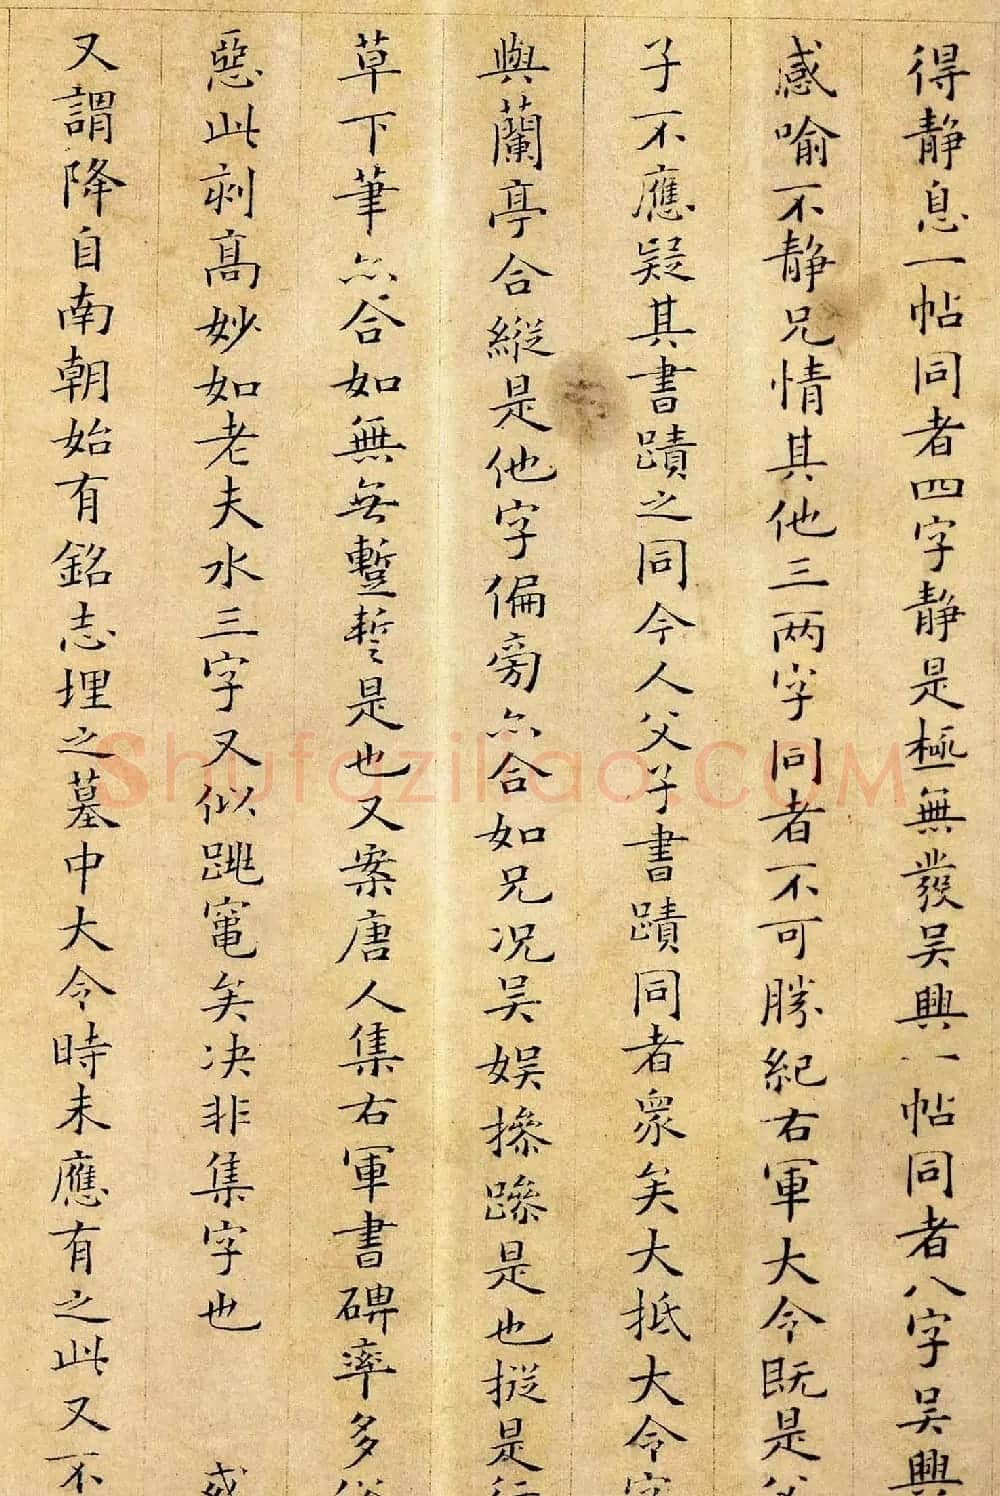 得静息一帖同者四字静是極無發吴興一帖同者八字吴興
感喻不静兄情其他三两字同者不可勝紀右軍大令既是父
子不應疑其書蹟之同今人父子書蹟同者衆矣大抵大令字
與蘭亭合縱是他字偏旁亦合如兄况吴娱摻蹂是也摐是行
草下筆亦合如無無蹔誓是也又案唐人集右軍書碑率多
惡此刻高妙如老夫水三字又似跳竃矣决非集字也 或
又謂降自南朝始有銘志埋之墓中大令時未應有之此又不
Shufaziliao.COM